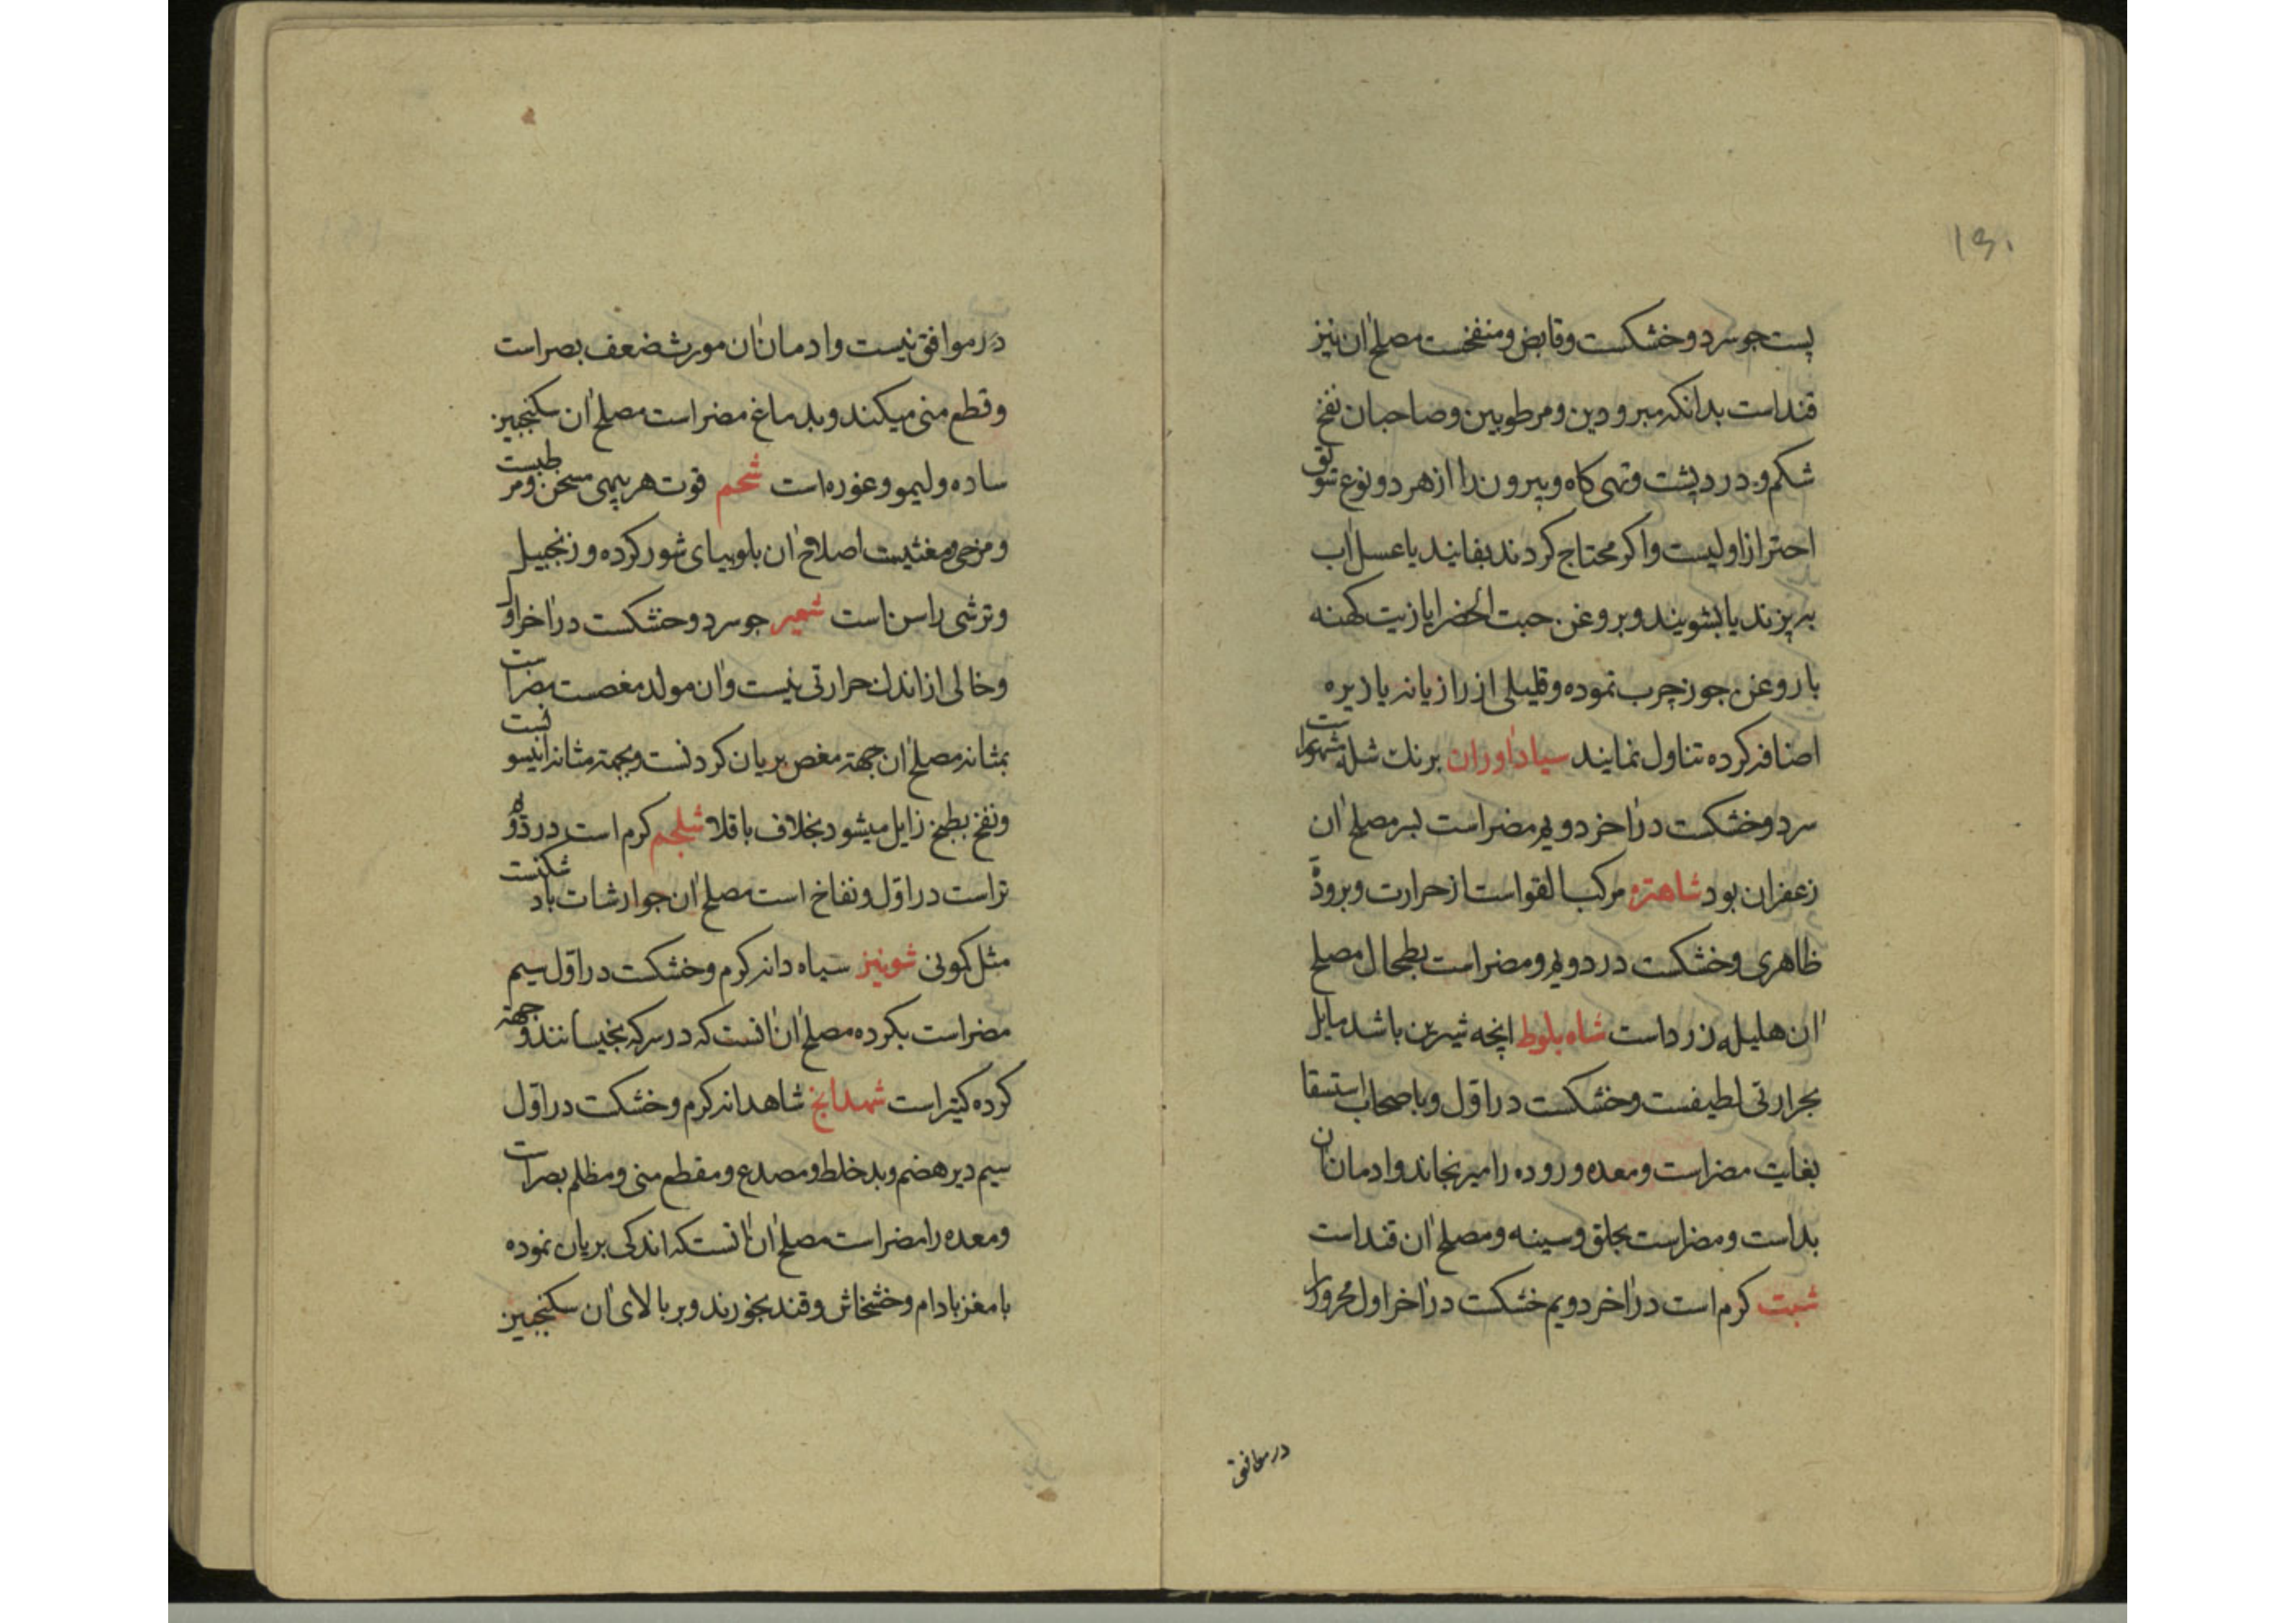 ۱۵۰
پست جو سرد و خشکست و قابض و منفخست مصلح آن نیز
قند است بدانکه مبرودین و مرطوبین و صاحبان نفخ
شکم و درد پشت و تهی کاه و پیرون را از هر دو نوع سویق
احتراز اولیست و اکر محتاج کردند بفانید یا عسل آب
بریزند یا بشویند و بروغن حبت الخضرا یا زیت کهنه
یا روغن جوز چرب نموده و قلیلی از رازیانه یا زیره
اضافه کرده تناول نمایند سیاداوران برنك شله مشهور است
سرد و خشکست در آخر دویم مضر است بسر مصلح آن
زعفران بود شاهتره مرکب القواست از حرارت و برودة
ظاهری و خشکست در دویم و مضر است بطحال مصلح
آن هلیله زرد است شاه بلوط انچه شیرین باشد مایل
بحرارتی لطیفست و خشکست در اوّل و باصحاب استسقا
بغایت مضر است و معده و روده را میرنجاند و ادمان آن
بد است و مضر است بحلق و سینه و مصلح آن قند است
شبت کرم است در آخر دویم خشکست در آخر اول محرور را
در موافق
در موافق نیست و ادمان آن مورث ضعف بصر است
و قطع منی میکند و بدماغ مضر است مصلح آن سکنجبین
ساده و لیمو و غوره است شحم قوت هر پیهی مسخن و مرطبست
و مرخی و مغثیست اصلاح آن بلوبیای شور کرده و زنجبیل
و ترشی راسن است شعیر جو سرد و خشکست در آخر اول
و خالی از اندك حرارتی نیست و آن مولد مغصست مضر است
بمثانه مصلح آن جهته مغص بریان کردنست و بجهته مثانه انیسونست
و نفخ بطبخ زایل میشود بخلاف باقلا شلجم کرم است در دوم
تر است در اوّل و نفاخ است مصلح آن جوارشات باد شکنست
مثل کمونی شونیز سیاه دانه کرم و خشکست در اوّل سیم
مضر است بکرده مصلح آن آنست که در سرکه بخیسانند و جهته
کرده کتیرا است شهدانج شاهدانه کرم و خشکست در اوّل
سیم دیر هضم و بد خلط و مصدع و مقطع منی و مظلم بصر است
و معده را مضر است مصلح آن آنستکه اندکی بریان نموده
با مغز بادام و خشخاش و قند بخورند و بر بالای آن سکنجبین